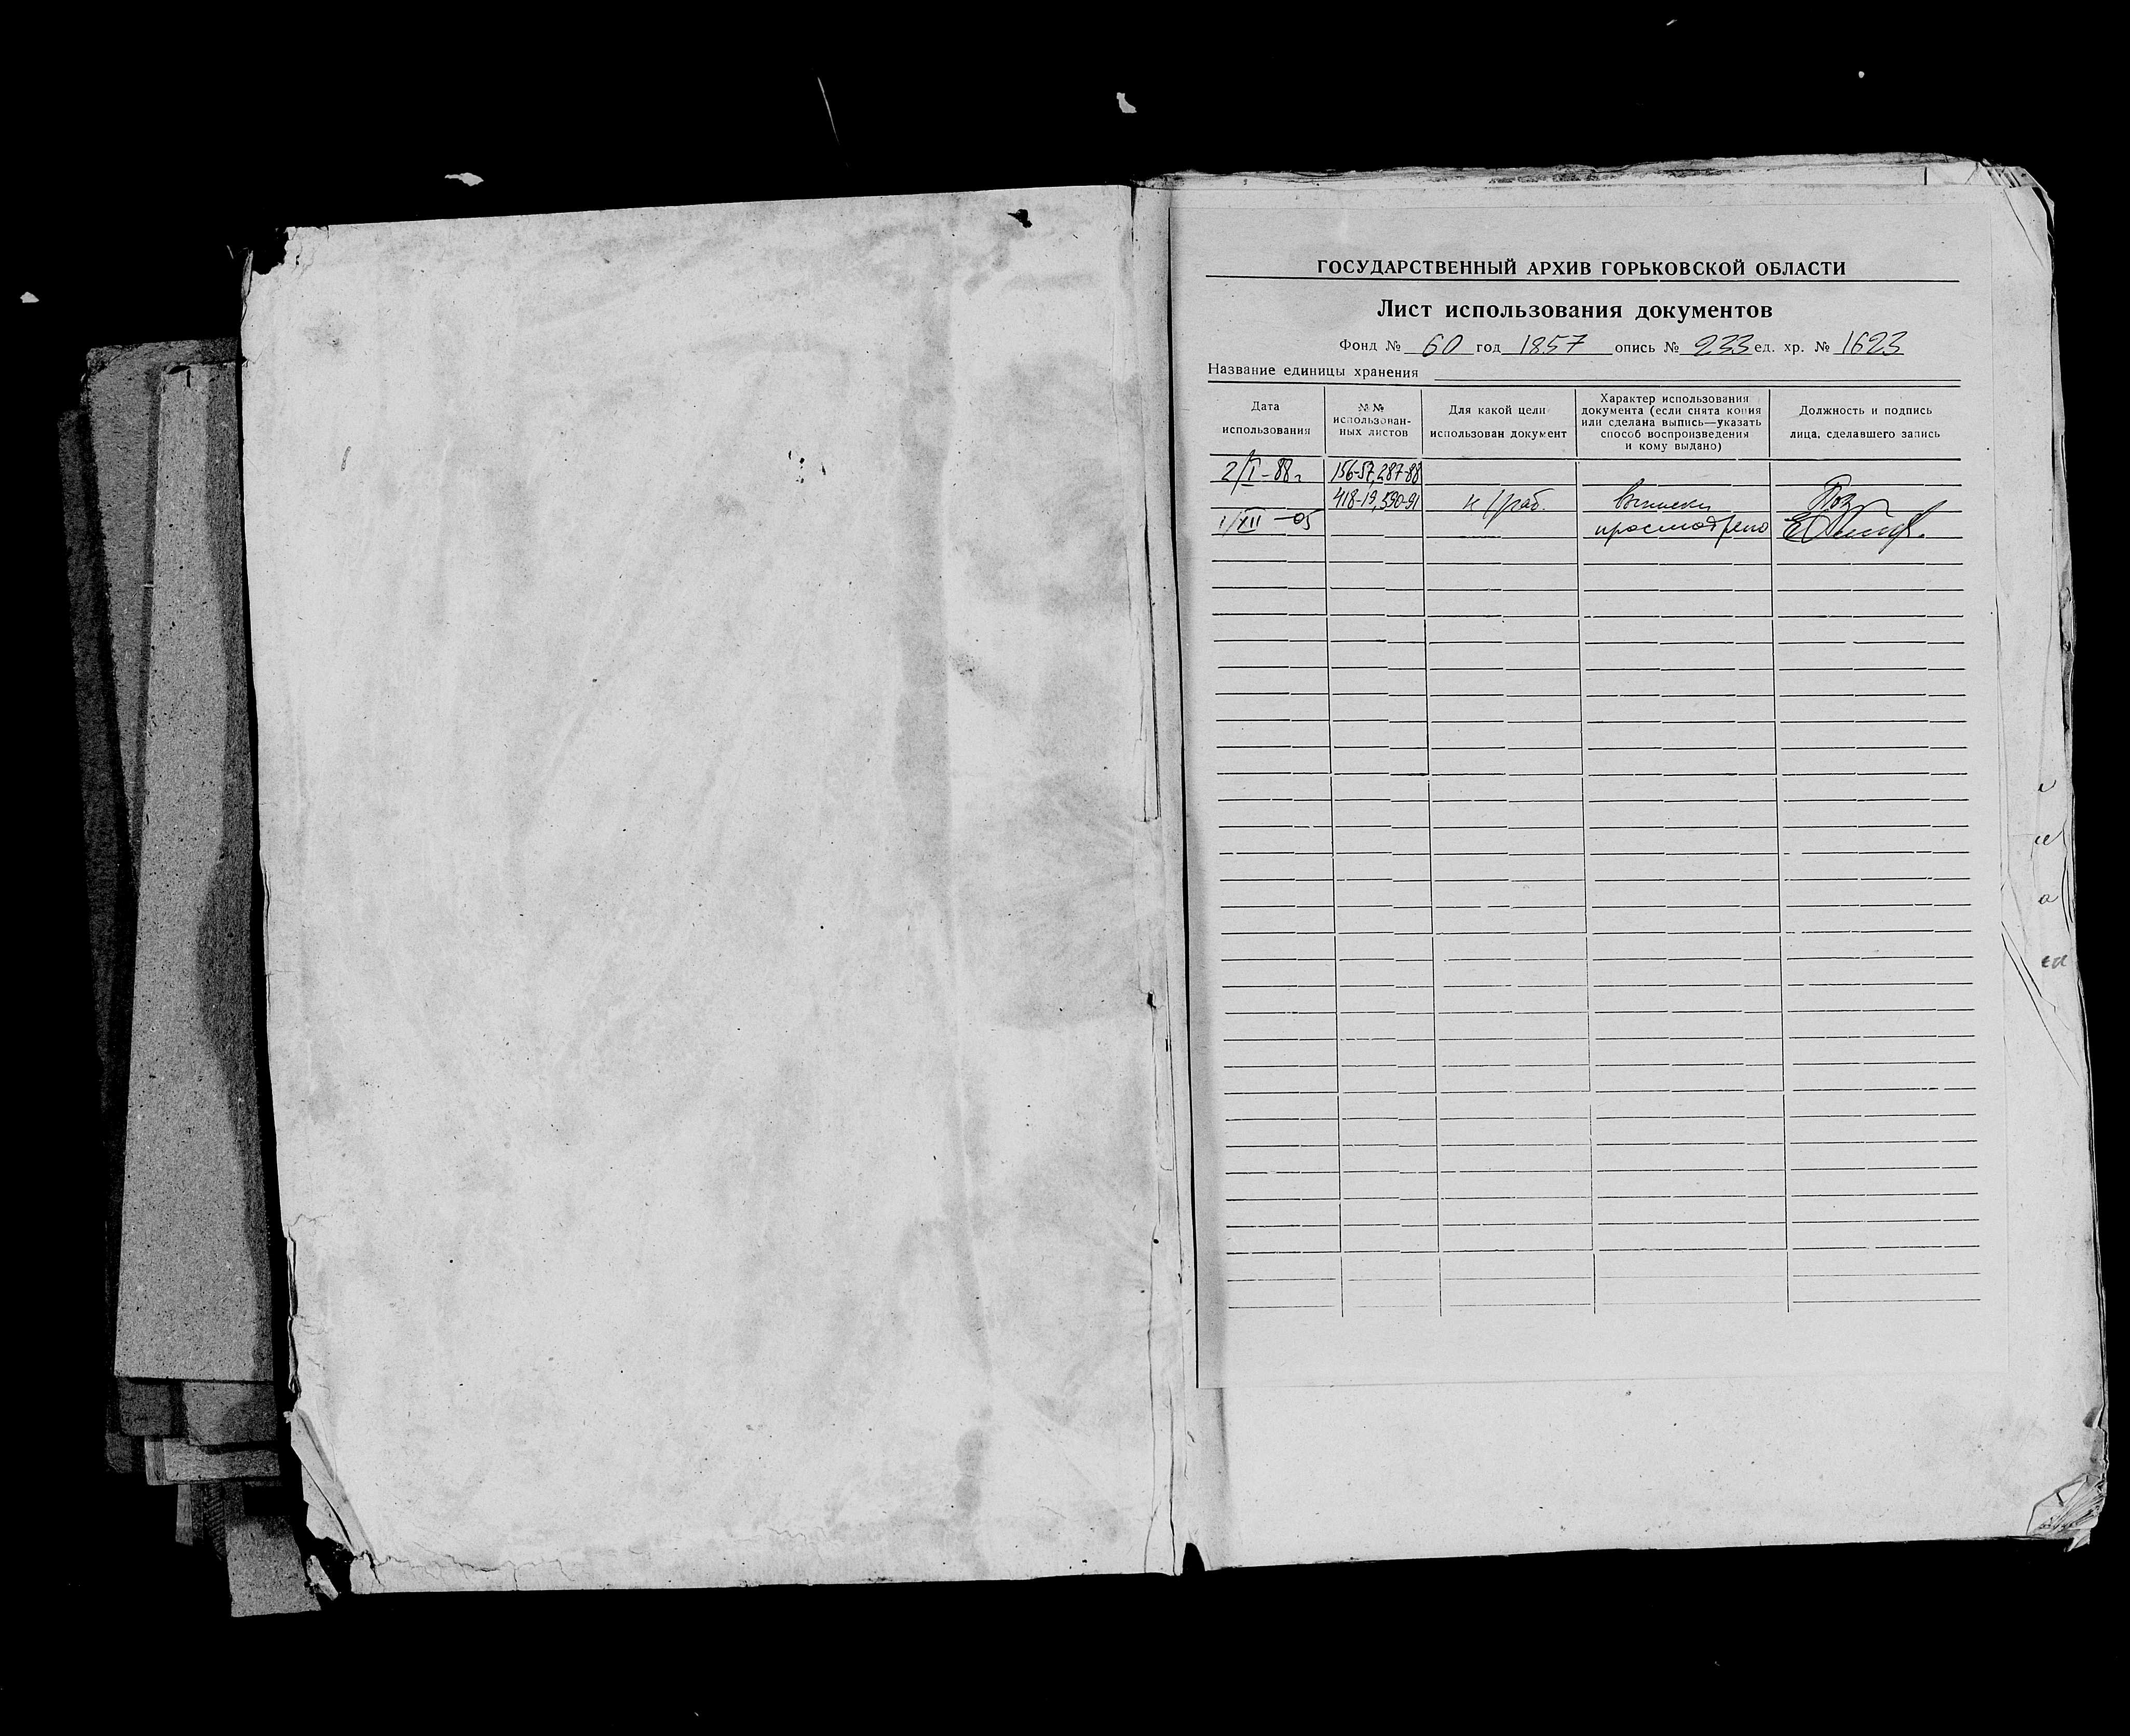 ГОСУДАРСТВЕННЫЙ АРХИВ ГОРЬКОВСКОЙ ОБЛАСТИ
Лист использования документов
Фонд № 60 год 1857 опись № 233 ед. хр. № 1623
Название единицы хранения
Дата использования
№№ использован-
ных листов
Для какой цели
использован документ
Характер использования
документа (если снята копия
или сделана выпись—указать
способ воспроизведения
и кому выдано)
Должность и подпись
лица, сделавшего запись
2/I-88г 156-57, 287-88
418-19, 590-91 к/раб. выписки
1/XII-05 просмотрено